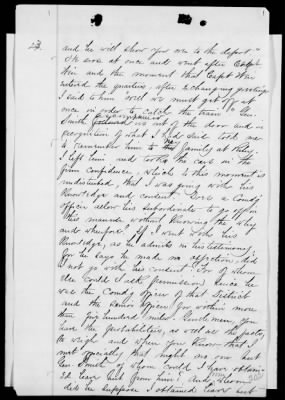 23
and he will show you over to the depot"
He arose at once and went after Capt
Weir and the moment that Capt Weir
entered the quarters, after exchanging greetings
I said to him well we must get off
at once in order to catch the train & Gen.
Smith accompanied us out of the door and in
recognition of what I had said told me
to remember him to the family, at Riley
I left him and took the cars in the
firm confidence, which to this moment is
undisturbed, that I was going with his
knowledge and consent. Does a Comdg
officer allow his subordinate to go off in
this manner without knowing the why
and wherefore? If I went with his
knowledge, as he admits in his testimony,
for he says he made no objection, did
I not go with his consent? For of whom
else could I ask permission since he
was the Comdg officer of that District
and the senior officer for within more
than five hundred miles. Gentlemen, you
have the probabilities, as well as the facts,
to weigh and when you know that I
met officially that night no one but
Gen Smith of whom could I have obtain-
ed leave but from him? And from whom
does he suppose I obtained leave but